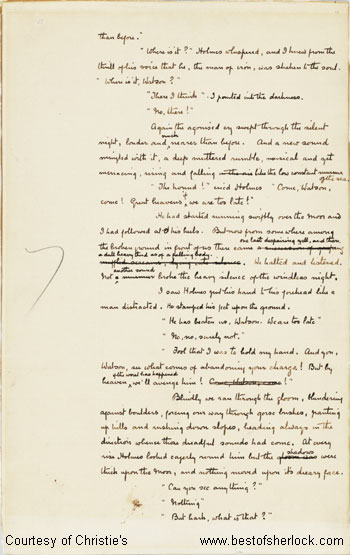 than before."
"Where is it?" Holmes whispered, and I knew from the
thrill of his voice that he, the man of iron, was shaken to the soul.
"Where is it, Watson?"
"There I think" - I pointed into the darkness.
"No, there!"
Again the agonised cry swept through the silent
night, louder and much nearer than before. And a new sound
mingled with it, a deep muttered rumble, musical and yet
menacing, rising and falling like the low constant murmur
of the sea.
"The hound!" cried Holmes "Come, Watson,
come! Great heavens, if we are too late!"
He had started running swiftly over the moor and
I had followed at his heels. But now from somewhere among
the broken ground in front of us there came one last despairing yell, and then
a dull heavy thud as of a falling body. We halted and listened.
Not another sound broke the heavy silence of the windless night.
I saw Holmes put his hand to his forehead like a
man distracted. He stamped his feet upon the ground.
"He has beaten us, Watson. We are too late"
"No, no, surely not."
"Fool that I was to hold my hand. And you,
Watson, see what comes of abandoning your charge! But by
heaven, if the worst has happened we'll avenge him!"
Blindly we ran through the gloom, blundering
against boulders, forcing our way through gorse bushes, panting
up hills and rushing down slopes, heading always in the
direction whence those dreadful sounds had come. At every
rise Holmes looked eagerly round him but the shadows were
thick upon the moor, and nothing moved upon its dreary face.
"Can you see anything?"
"Nothing"
"But hark, what is that?"
Courtesy of Christie's www.bestofsherlock.com